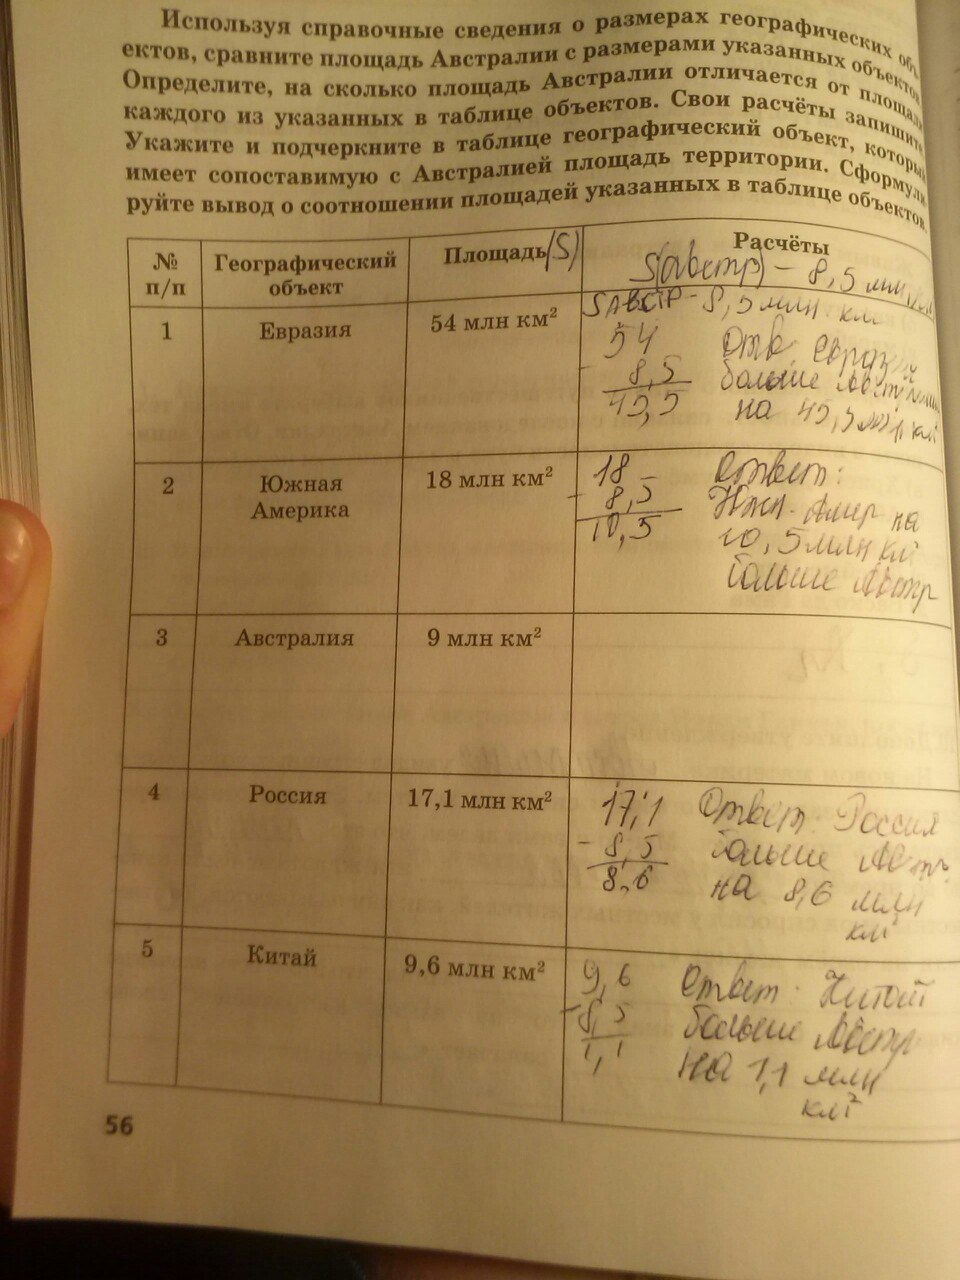 Используя справочные сведения о размерах географических объ
ектов, сравните площадь Австралии с размерами указанных объектов
Определите, на сколько площадь Австралии отличается от площади
каждого из указанных в таблице объектов. Свои расчёты запишите
Укажите и подчеркните в таблице географический объект, который
имеет сопоставимую с Австралией площадь территории. Сформули
руйте вывод о соотношении площадей указанных в таблице объектов.
№ п/п
Географический объект
Площадь (S)
Расчёты
S(австр) - 8,5 млн
1
Евразия
54 млн км²
SАВСТР - 8,5 млн км
54
- 8,5
45,5
Отв
больше
на 45,5 км²
2
Южная Америка
18 млн км²
18
- 8,5
10,5
Ответ:
Южн. Амер на
10,5 млн км²
больше Австр
3
Австралия
9 млн км²
4
Россия
17,1 млн км²
17,1
- 8,5
8,6
Ответ. Россия
больше Австр.
на 8,6 млн
км²
5
Китай
9,6 млн км²
9,6
- 8,5
1,1
Ответ. Китай
больше Австр
на 1,1 млн
км²
56